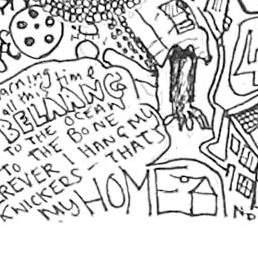 arning time
all I'm
BELONNG
TO THE OCEAN
TO THE BONE
REVER I HANG MY
KNICKERS - THAT'S
my HOME